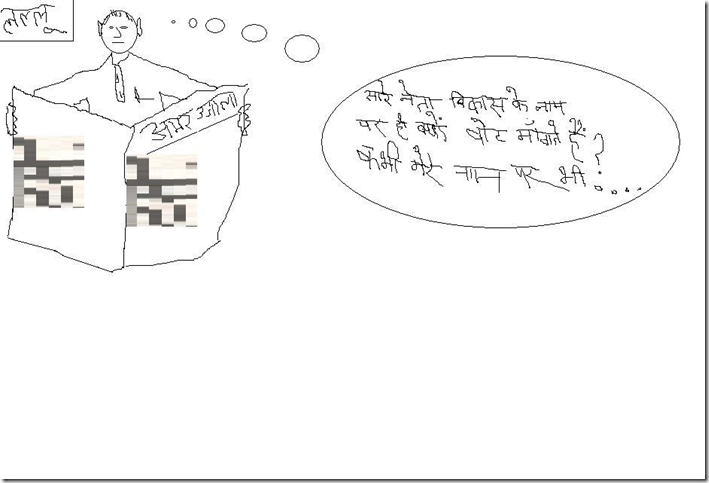 लल्लू
अमर उजाला
सारे नेता विकास के नाम
पर ही क्यों वोट माँगते हैं?
कभी मेरे नाम पर भी....